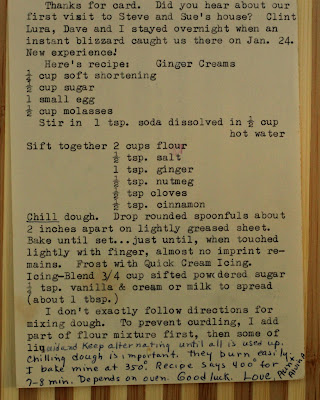 Thanks for card. Did you hear about our
first visit to Steve and Sue's house? Clint
Lura, Dave and I stayed overnight when an
instant blizzard caught us there on Jan. 24.
New experience!
Here's recipe: Ginger Creams
cup soft shortening
½ cup sugar
1 small egg
½ cup molasses
Stir in 1 tsp. soda dissolved in ½ cup
hot water
Sift together 2 cups flour
½ tsp. salt
1 tsp. ginger
½ tsp. nutmeg
½ tsp cloves
½ tsp. cinnamon
Chill dough. Drop rounded spoonfuls about
2 inches apart on lightly greased sheet.
Bake until set...just until, when touched
lightly with finger, almost no imprint re-
mains. Frost with Quick Cream Icing.
Icing-Blend 3/4 cup sifted powdered sugar
tsp. vanilla & cream or milk to spread
(about 1 tbsp.)
I don't exactly follow directions for
mixing dough. To prevent curdling, I add
part of flour mixture first, then some of
liquid and keep alternating until all is used up.
Chilling dough is important. They burn easily.
I bake mine at 350° Recipe says 400° for
7-8 min. Depends on oven. Good luck. Love,
Anna